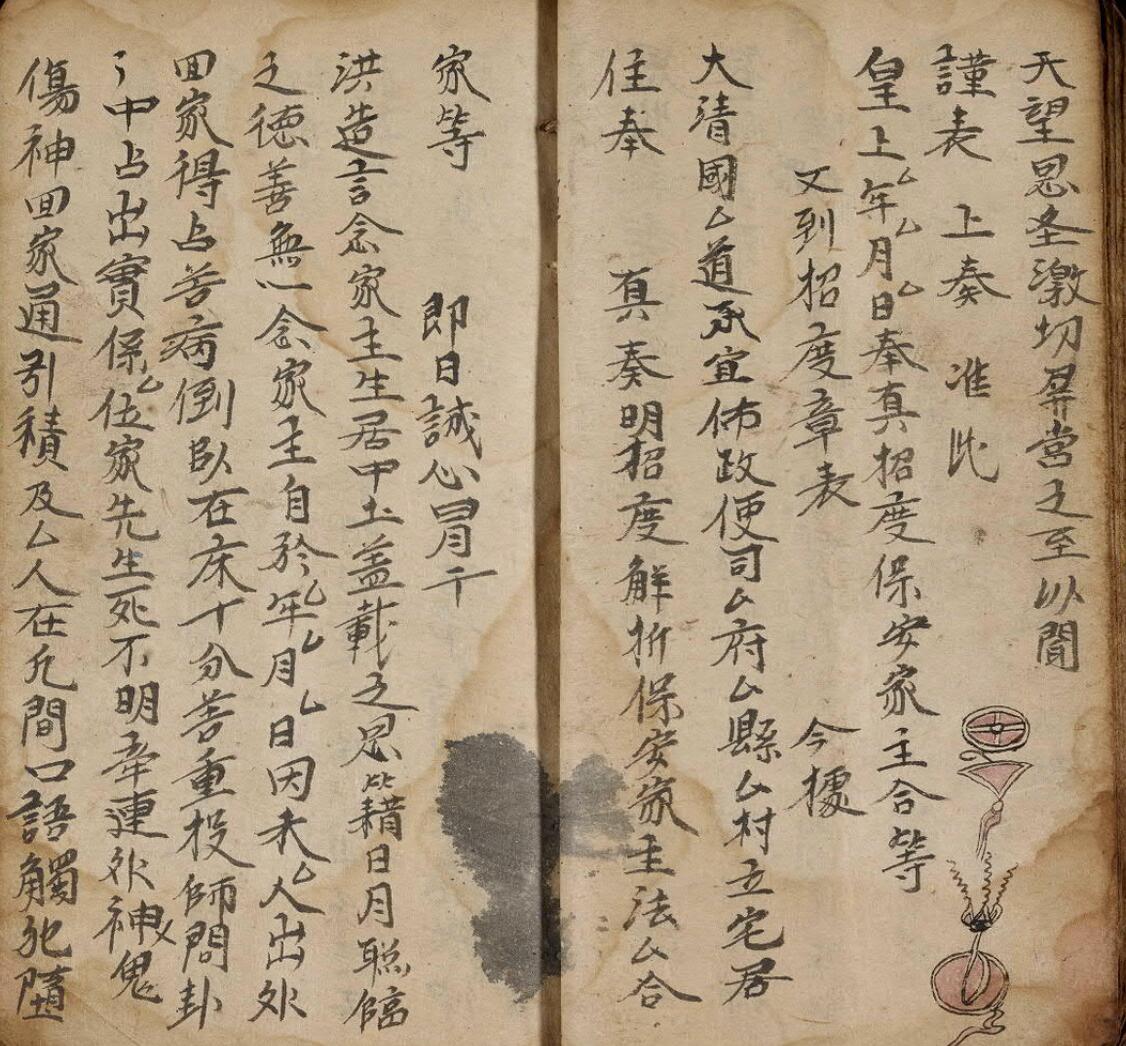 天望恩圣激切屏营之至以聞
謹表 上奏 准此
皇上厶年厶月厶日奉真招度保安家主合等
又到招度章表 今據
大清國厶道承宣佈政使司厶府厶縣厶村立宅居
住奉 真奏明招度解折保安家主法厶合
家等 即日誠心冒干
洪造言念家主生居中土盖載之恩 藉日月聡臨
之德善無一念家主自於厶年厶月厶日因未厶人出外
回家得占苦病倒臥在床十分苦重投師問卦
卦中占出實係厶位家先生死不明牽連外神鬼
傷神回家通引積及厶人在凡間口語觸犯墮